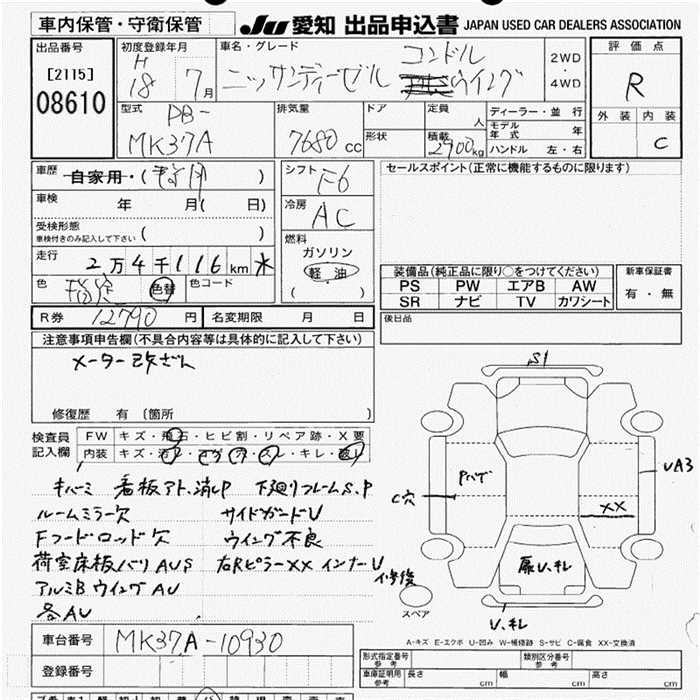 車内保管・守衛保管
JU 愛知 出品申込書 JAPAN USED CAR DEALERS ASSOCIATION
出品番号
[2115]
08610
初度登録年月
H
18 7月
車名・グレード
コンドル
ニッサンディーゼル ウイング
2WD
・
4WD
評価点
R
外装 内装
C
型式
PB-
MK37A
排気量
7680cc
ドア
形状
定員
人
積載
2900kg
ディーラー・並行
モデル年式 年
ハンドル 左・右
車歴
自家用・( )
車検 年 月( 日)
受検形態
車検付きのみ記入して下さい ( )
走行 2万4千116km
色 色替 色コード
シフト F6
冷房 AC
燃料
ガソリン
軽油
( )
セールスポイント(正常に機能するものに限ります)
装備品(純正品に限り○をつけてください)
PS PW エアB AW
SR ナビ TV カワシート
新車保証書
有・無
R券 12790円 名変期限 月 日
後日品
注意事項申告欄(不具合内容等は具体的に記入して下さい)
メーター改ざん
修復歴 有〔箇所 〕
検査員記入欄
FW キズ・飛石・ヒビ割・リペア跡・X要
内装 キズ・
キレ・
看板アト、消しP 下廻りフレームS.P
ルームミラー欠 サイドガードU
Fフードロッド欠 ウイング不良
荷室床板バリAUS 右RピラーXX インナーU
アルミB ウイングAU
各AU
S1
Pハゲ
C穴
UA3
XX
扉U.キレ
U.キレ
スペア
A-キズ E-エクボ U-凹み W-補修跡 S-サビ C-腐食 XX-交換済
車台番号 MK37A-10930
登録番号
形式指定番号
参考
類別区分番号
参考
車庫証明用
参考
長さ cm 幅 cm 高さ cm